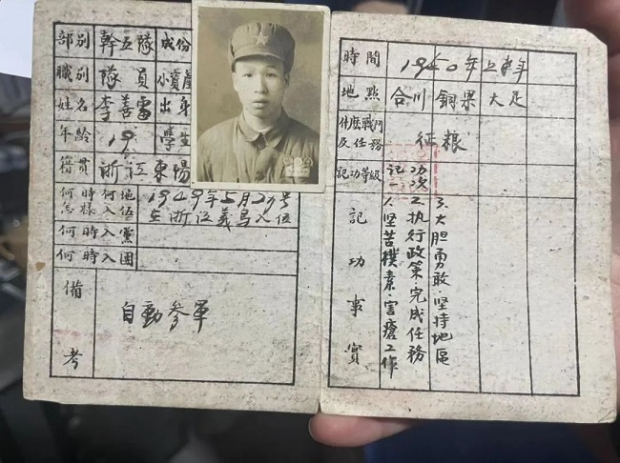 部別 幹五隊 成份 小資產
職別 隊員
姓名 李善雷 出身 學生
年齡 19
籍貫 浙江東陽
何時何地怎樣入伍 1949年5月29号在浙江義烏入伍
何時入黨
何時入團
備考 自動參軍
時間 1950年上半年
地點 合川 銅梁 大足
什麽戰鬥及任務 征粮
記功等級 記一功次
記功事實
1.坚苦樸素.害瘧工作
2.执行政策完成任務
3.大胆勇敢.坚持地區